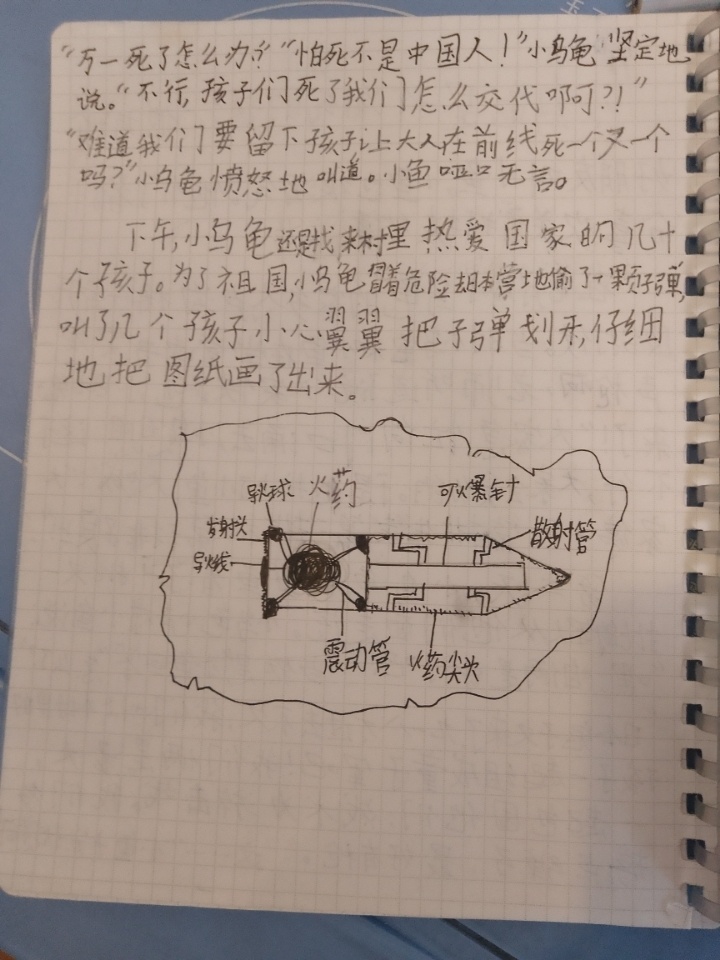 “万一死了怎么办？”“怕死不是中国人！”小乌龟坚定地
说。“不行，孩子们死了我们怎么交代啊？！”
“难道我们要留下孩子让大人在前线死一个又一个
吗？”小乌龟愤怒地叫道。小鱼哑口无言。
下午，小乌龟还是找来村里热爱国家的几十
个孩子。为了祖国，小乌龟冒着危险去日本营地偷了一颗子弹，
叫了几个孩子小心翼翼把子弹划开，仔细
地把图纸画了出来。
导火球 火药 可爆针
发射关 散射管
导火线
震动管 火药尖头